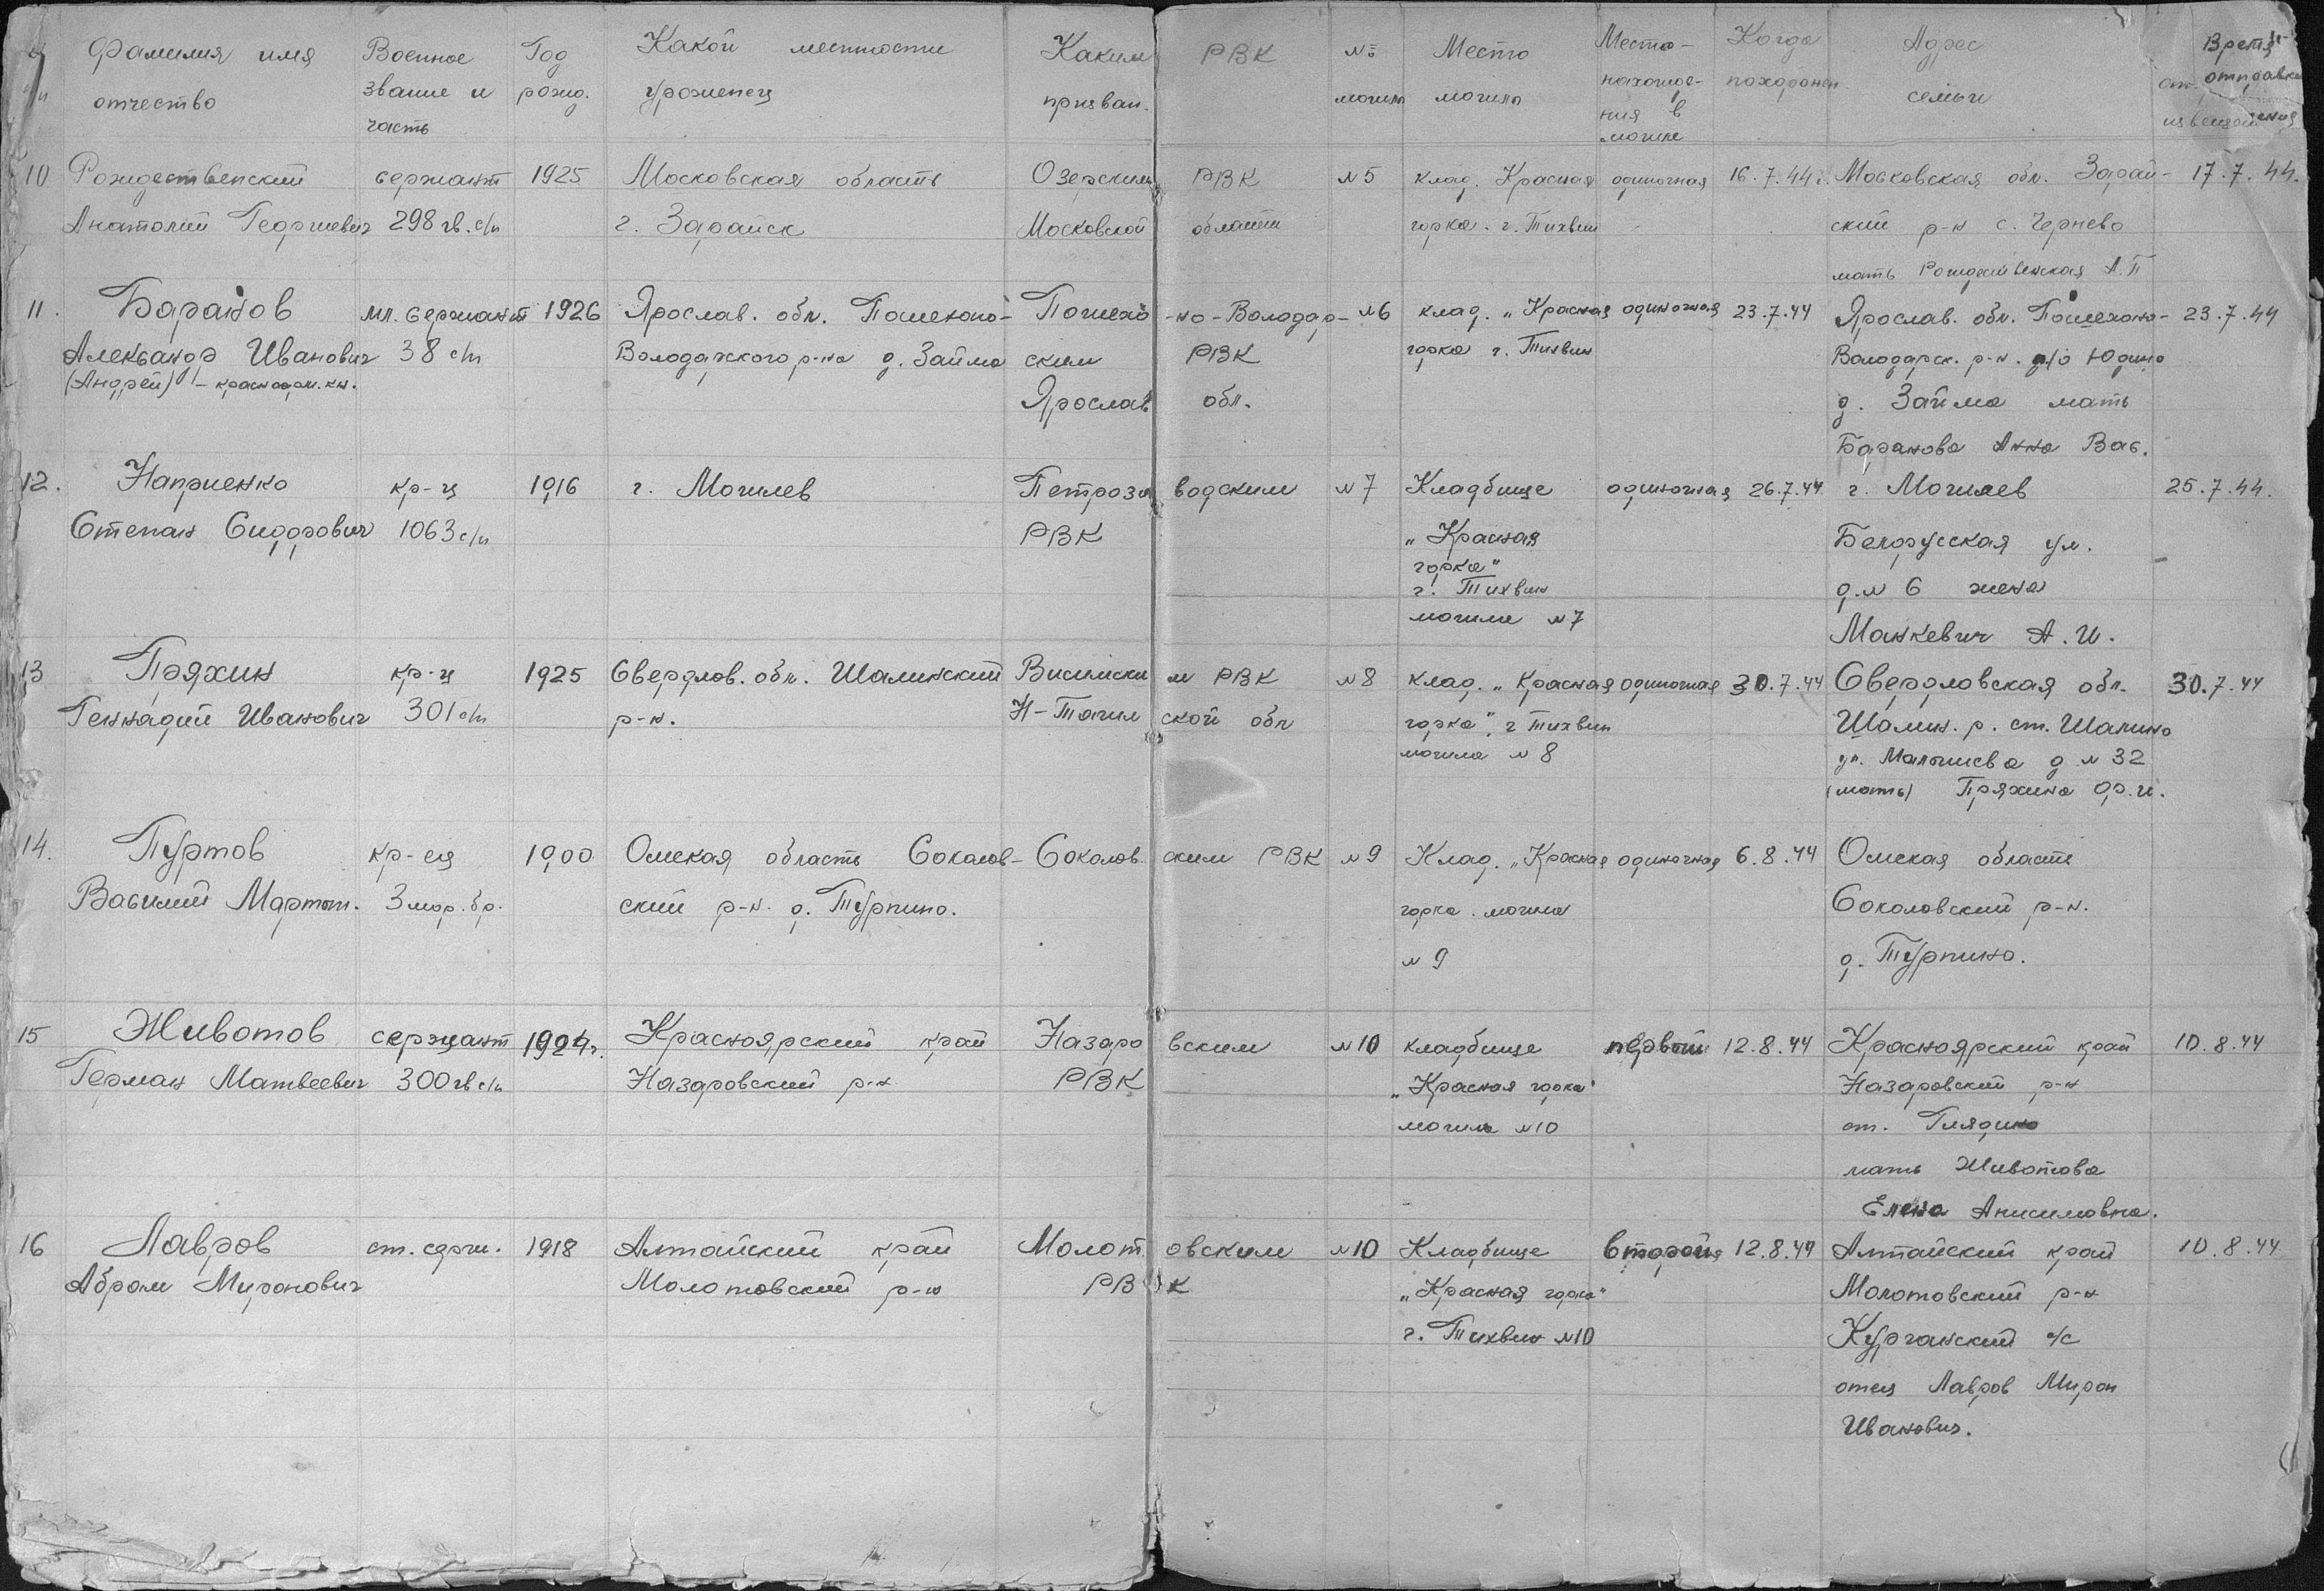 Фамилия имя Военное Год Какой местности Каким РВК № Место Место- Когда Адрес Время
отчество звание и рожд. уроженец призван. могилы могилы нахожде- похоронен семьи отправки
часть ния в извещения
могиле
10 Рождественский сержант 1925 Московская область Озерским РВК №5 клад. Красная одиночная 16.7.44г. Московская обл. Зарай- 17.7.44.
Анатолий Георгиевич 298 гв. с/п г. Зарайск Московской области горка. г. Тихвин ский р-н с. Чернево
мать Рождественская А.П
11. Баранов мл. сержант 1926 Ярослав. обл. Пошехоно- Пошехо -но-Володар- №6 клад. „Красная одиночная 23.7.44 Ярослав. обл. Пошехоно- 23.7.44
Александр Иванович 38 с/п Володарского р-на д. Займа ским РВК горка г. Тихвин Володарск. р-н. п/о Юдино
(Андрей) - красноарм. кн.
Ярослав обл. д. Займа мать
Баранова Анна Вас.
12. Наприенко кр-ц 1916 г. Могилев Петроза водским №7 Кладбище одиночная 26.7.44 г. Могилев 25.7.44.
Степан Сидорович 1063 с/п РВК „Красная Белорусская ул.
горка"
г. Тихвин д. № 6 жена
могила №7 Манкевич А.И.
13 Пряхин кр-ц 1925 Свердлов. обл. Шалинский Висимски м РВК №8 клад. „Красная одиночная 30.7.44 Свердловская обл. 30.7.44
Геннадий Иванович 301 с/п р-н. Н-Тагил ской обл горка", г Тихвин Шалин. р. ст. Шалино
могила №8 ул. Малышева д №32
(мать) Пряхина
14. Пуртов кр-ец 1900 Омская область Соколов- Соколов. ским РВК №9 Клад. „Красная одиночная 6.8.44 Омская область
Василий Мартын. 3 мор. бр. ский р-н. д. Турпино. горка. могила Соколовский р-н.
№9 д. Турпино.
15 Животов сержант 1924г. Красноярский край Назаро вским №10 кладбище первый 12.8.44 Красноярский край 10.8.44
Герман Матвеевич 300 гв с/п Назаровский р-н РВК „Красная горка" Назаровский р-н
могила №10 ст. Глядино
мать Животова
Елена Анисимовна.
16 Лавров ст. серж. 1918 Алтайский край Молот овским №10 Кладбище второй 12.8.44 Алтайский край 10.8.44
Абрам Миронович Молотовский р-н РВ К „Красная горка" Молотовский р-н
г. Тихвин №10 Курганский с/с
отец Лавров Мирон
Иванович.